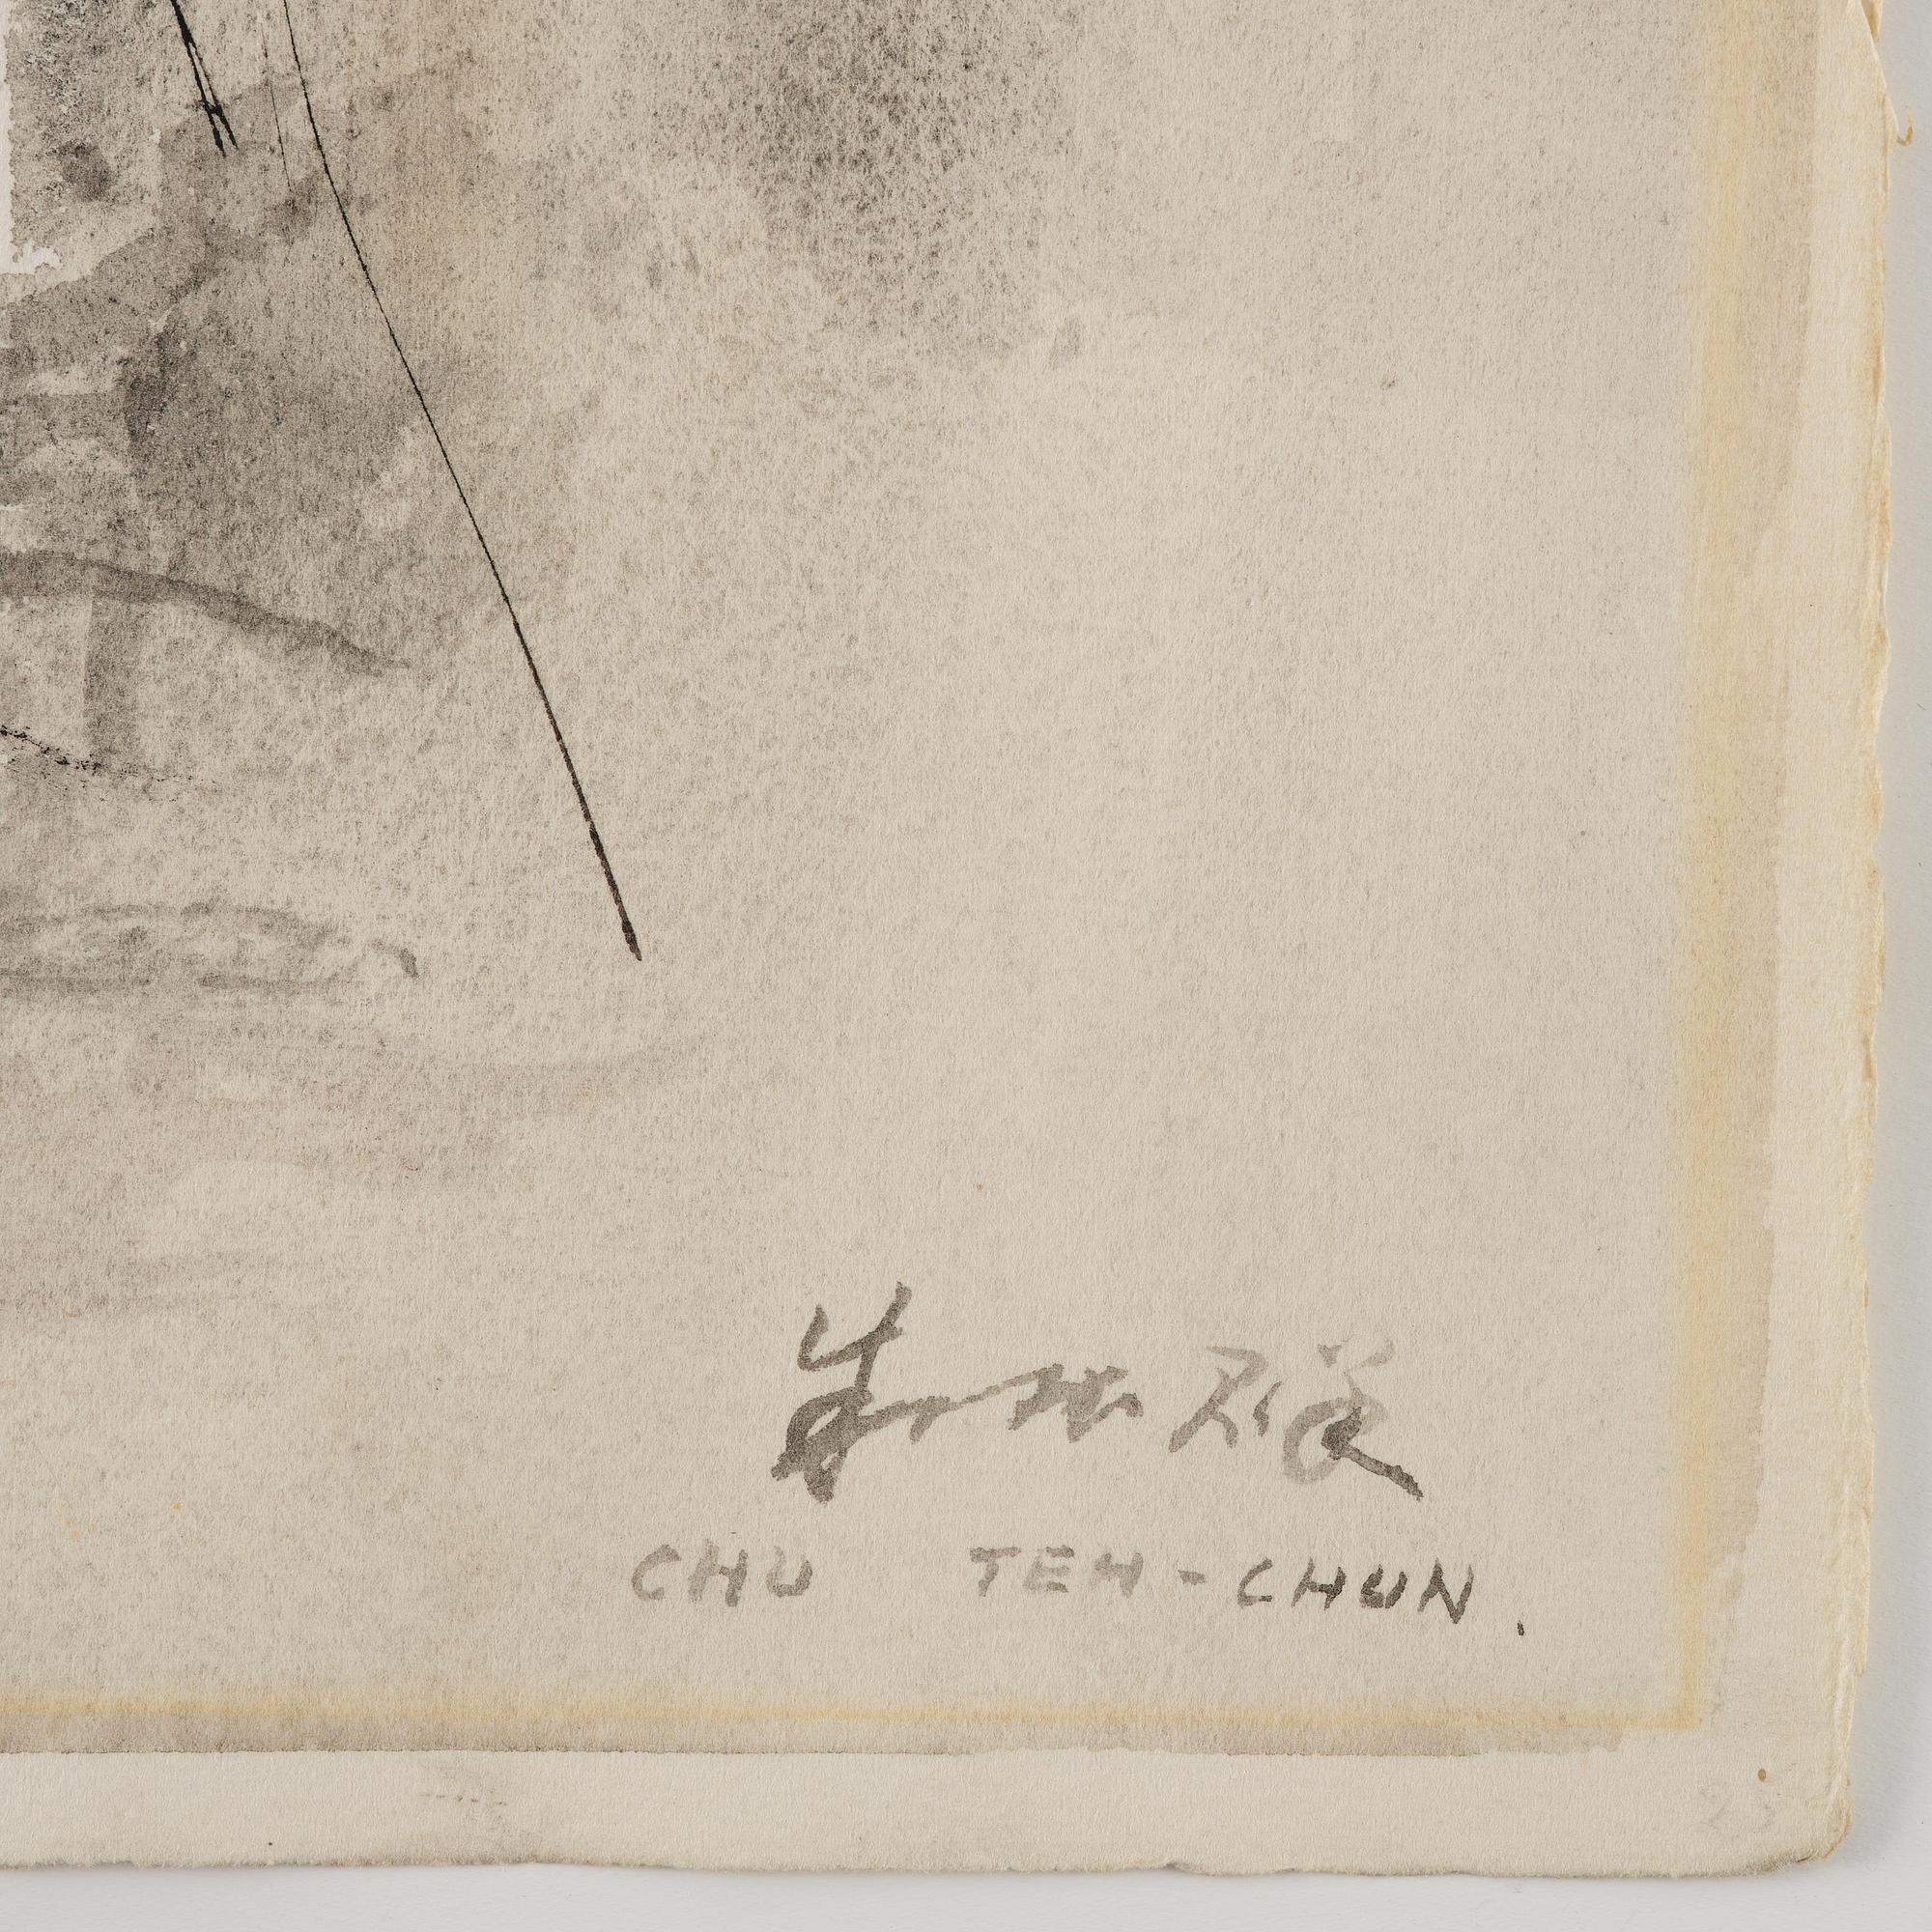 朱德群
CHU TEH-CHUN.
23